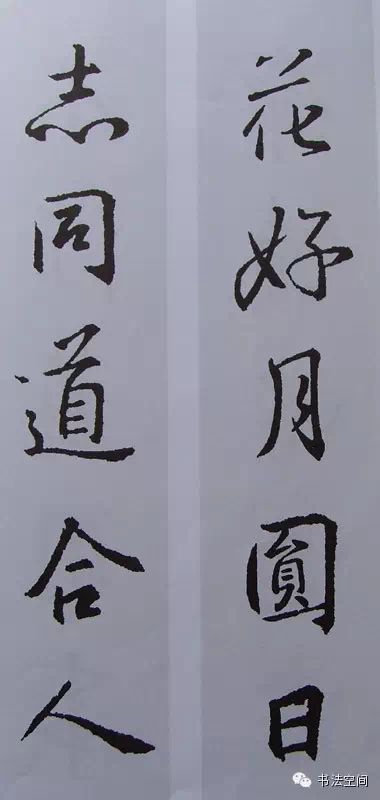 花好月圓日
志同道合人
书法空间